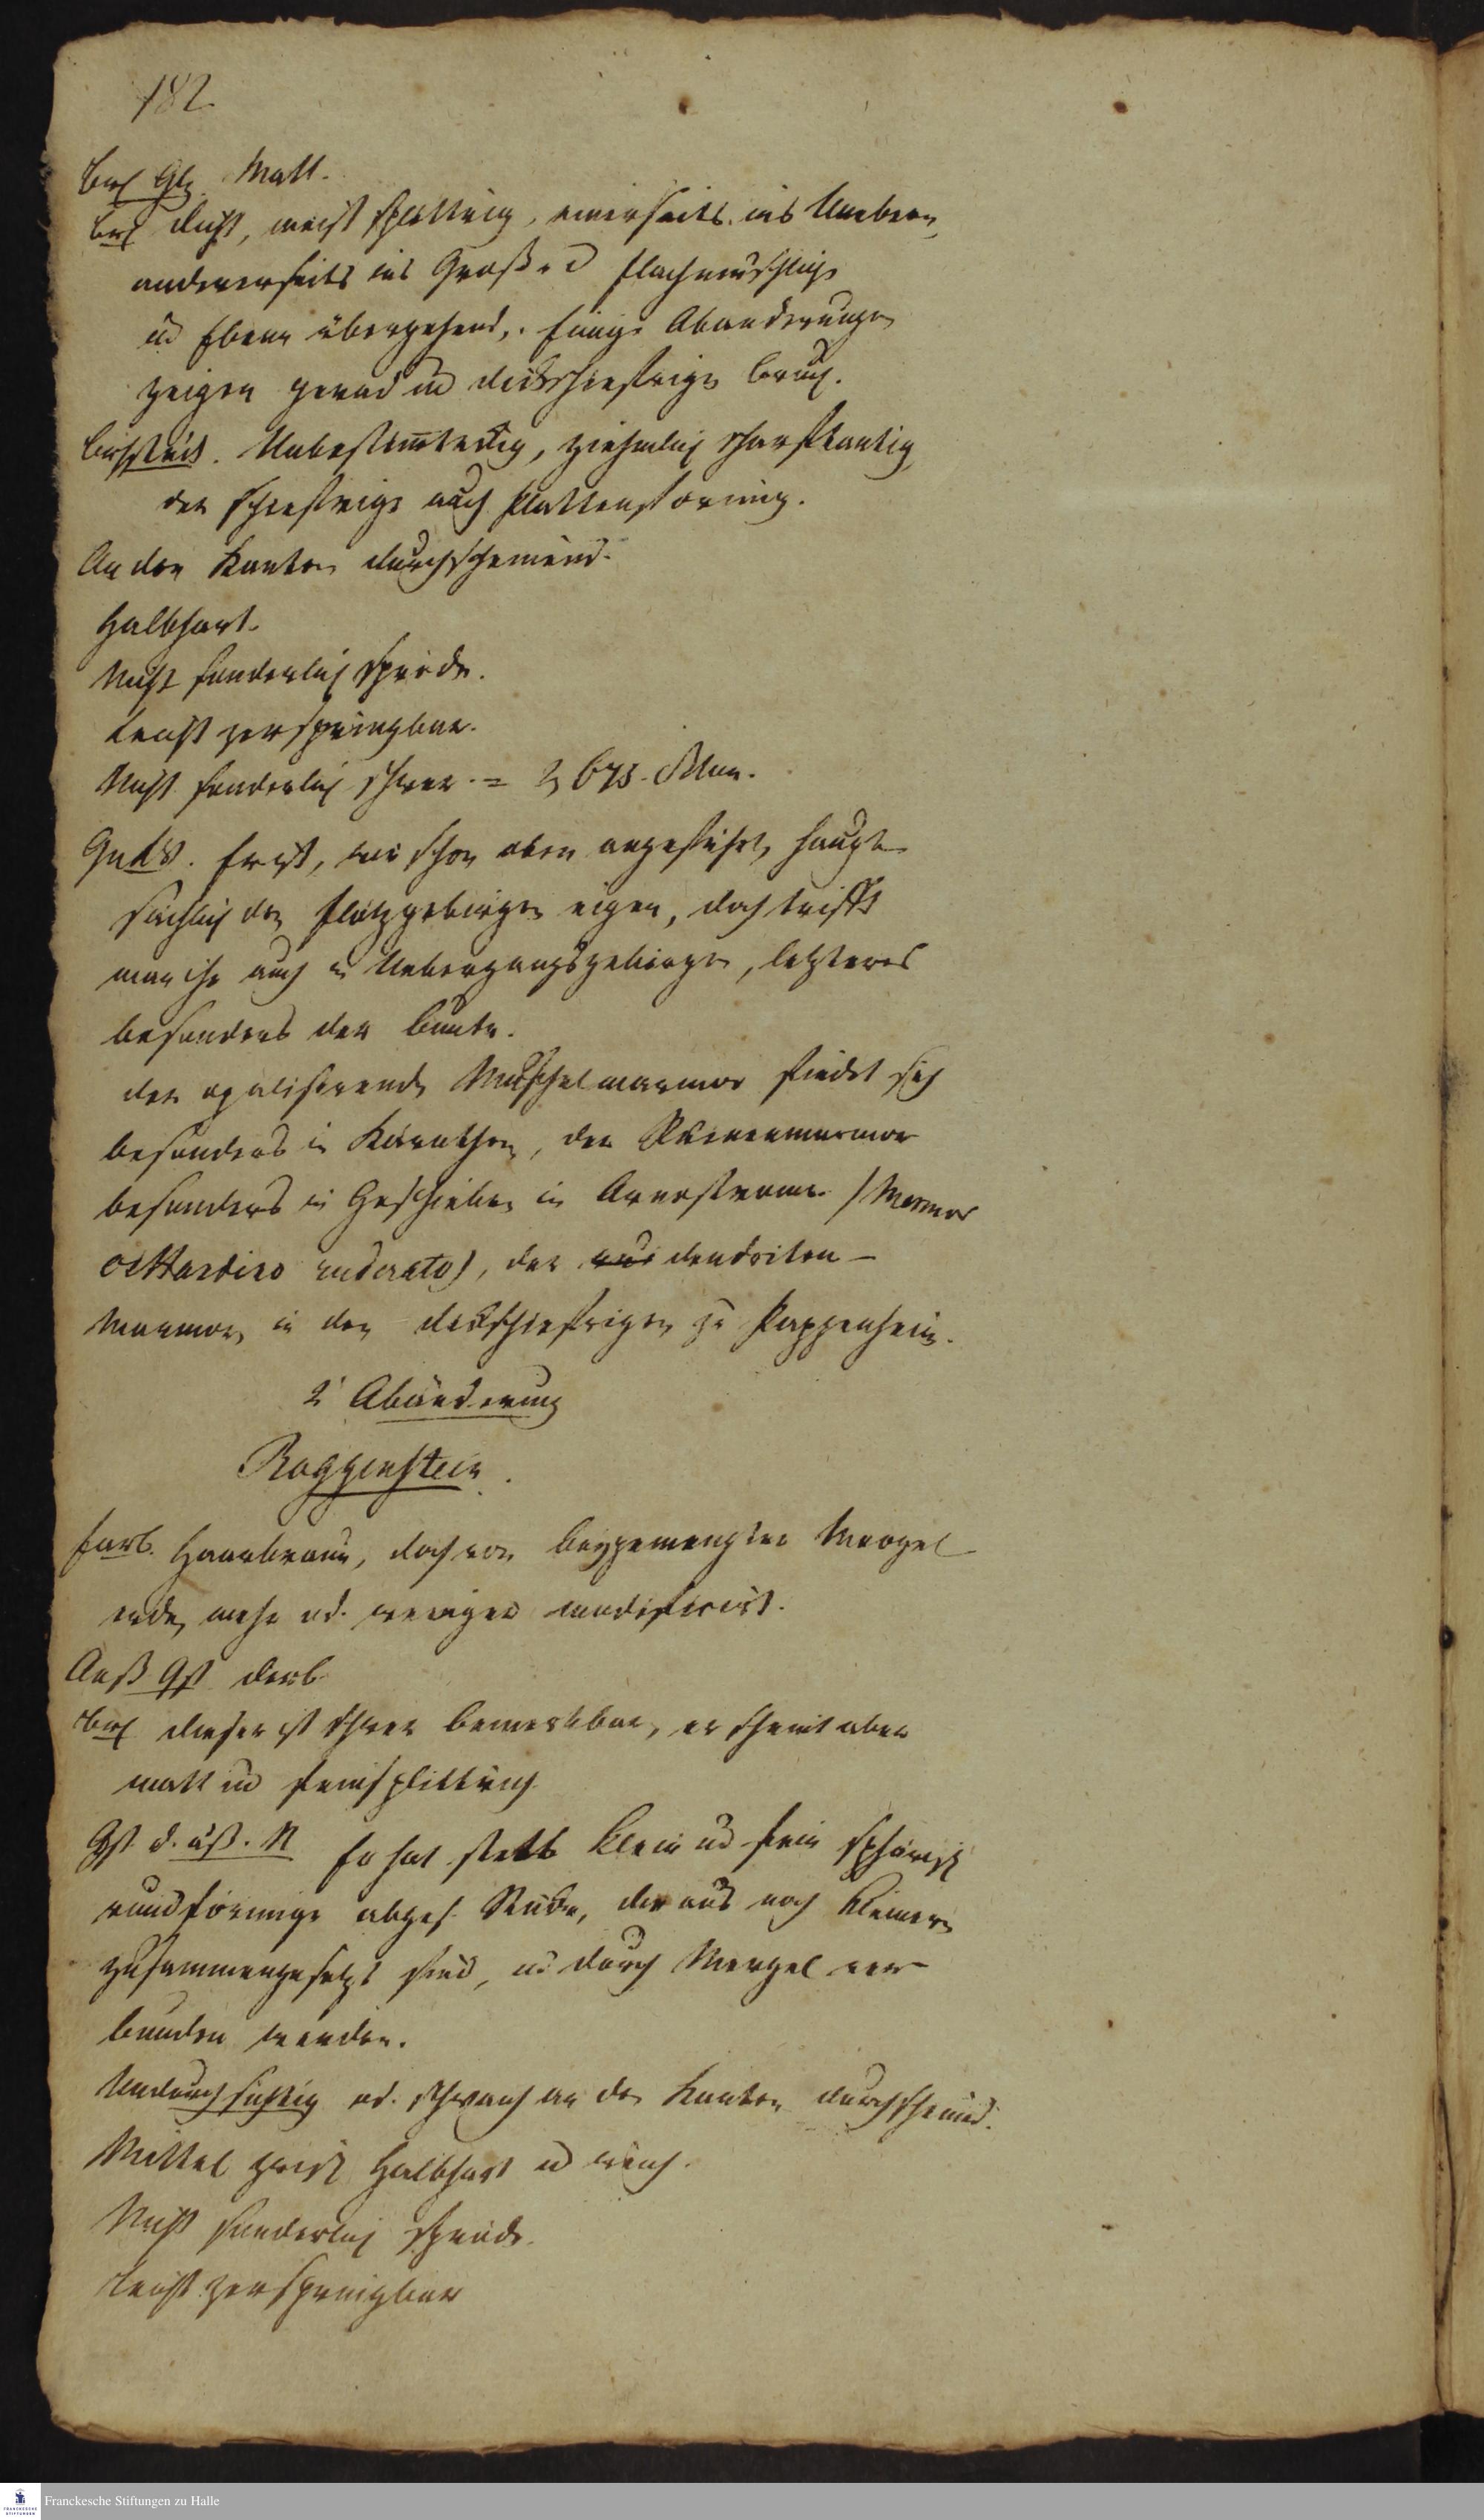 182.
Brch Glz. Matt.
Brch dicht, meist splittrig, einerseits ins Unebene,
andererseits ins Große u flachmuschlige
ud Ebene übergehend,. Einige Abänderungen
zeigen gerad ud dickschiefrigen Bruch.
Brchstück. Unbestimteckig, ziehmlich scharfkantig
der schiefrige auch Plattenförmig.
An den Kanten durchscheinend.
Halbhart.
Nicht sonderlich spröde.
Leicht zerspringbar.
Nicht sonderlich schwer. = 2,675.
Er ist, wie schon oben angeführt, haupt-
sächlich den Flötzgebirgen eigen, doch trifft
man ihn auch in Uebergangsgebirgen, letzteres
besonders der bunte.
der opalisirende Muschelmarmor findet sich
besonders in Kärnthen, der Ruinenmarmor
besonders in Geschieben im Arnostrome. (Marmor
ruderato), der dendriten-
Marmor, in den dickschiefrigen zu Pappenheim.
2 Abänderung
Roggenstein.
Farb. Haarbraun, doch von beygemengter Mergel
erde, mehr od. weniger modificirt.
Aeuß Gst derb
Brch dieser ist schwer bemerkbar, er scheint aber
matt ud feinsplittrig.
Gst d. äß. Er hat stets klein ud fein sphärisch
rundförmige abges. Stücke, der aus noch kleinern
zusammengesetzt sind, ud durch Mergel ver-
bunden werden.
Undurchsichtig od. schwach an den Kanten durchscheind.
Mittel zwisch Halbhart ud weich.
Nicht sonderlich spröde.
Leicht zerspringbar
Franckesche Stiftungen zu Halle